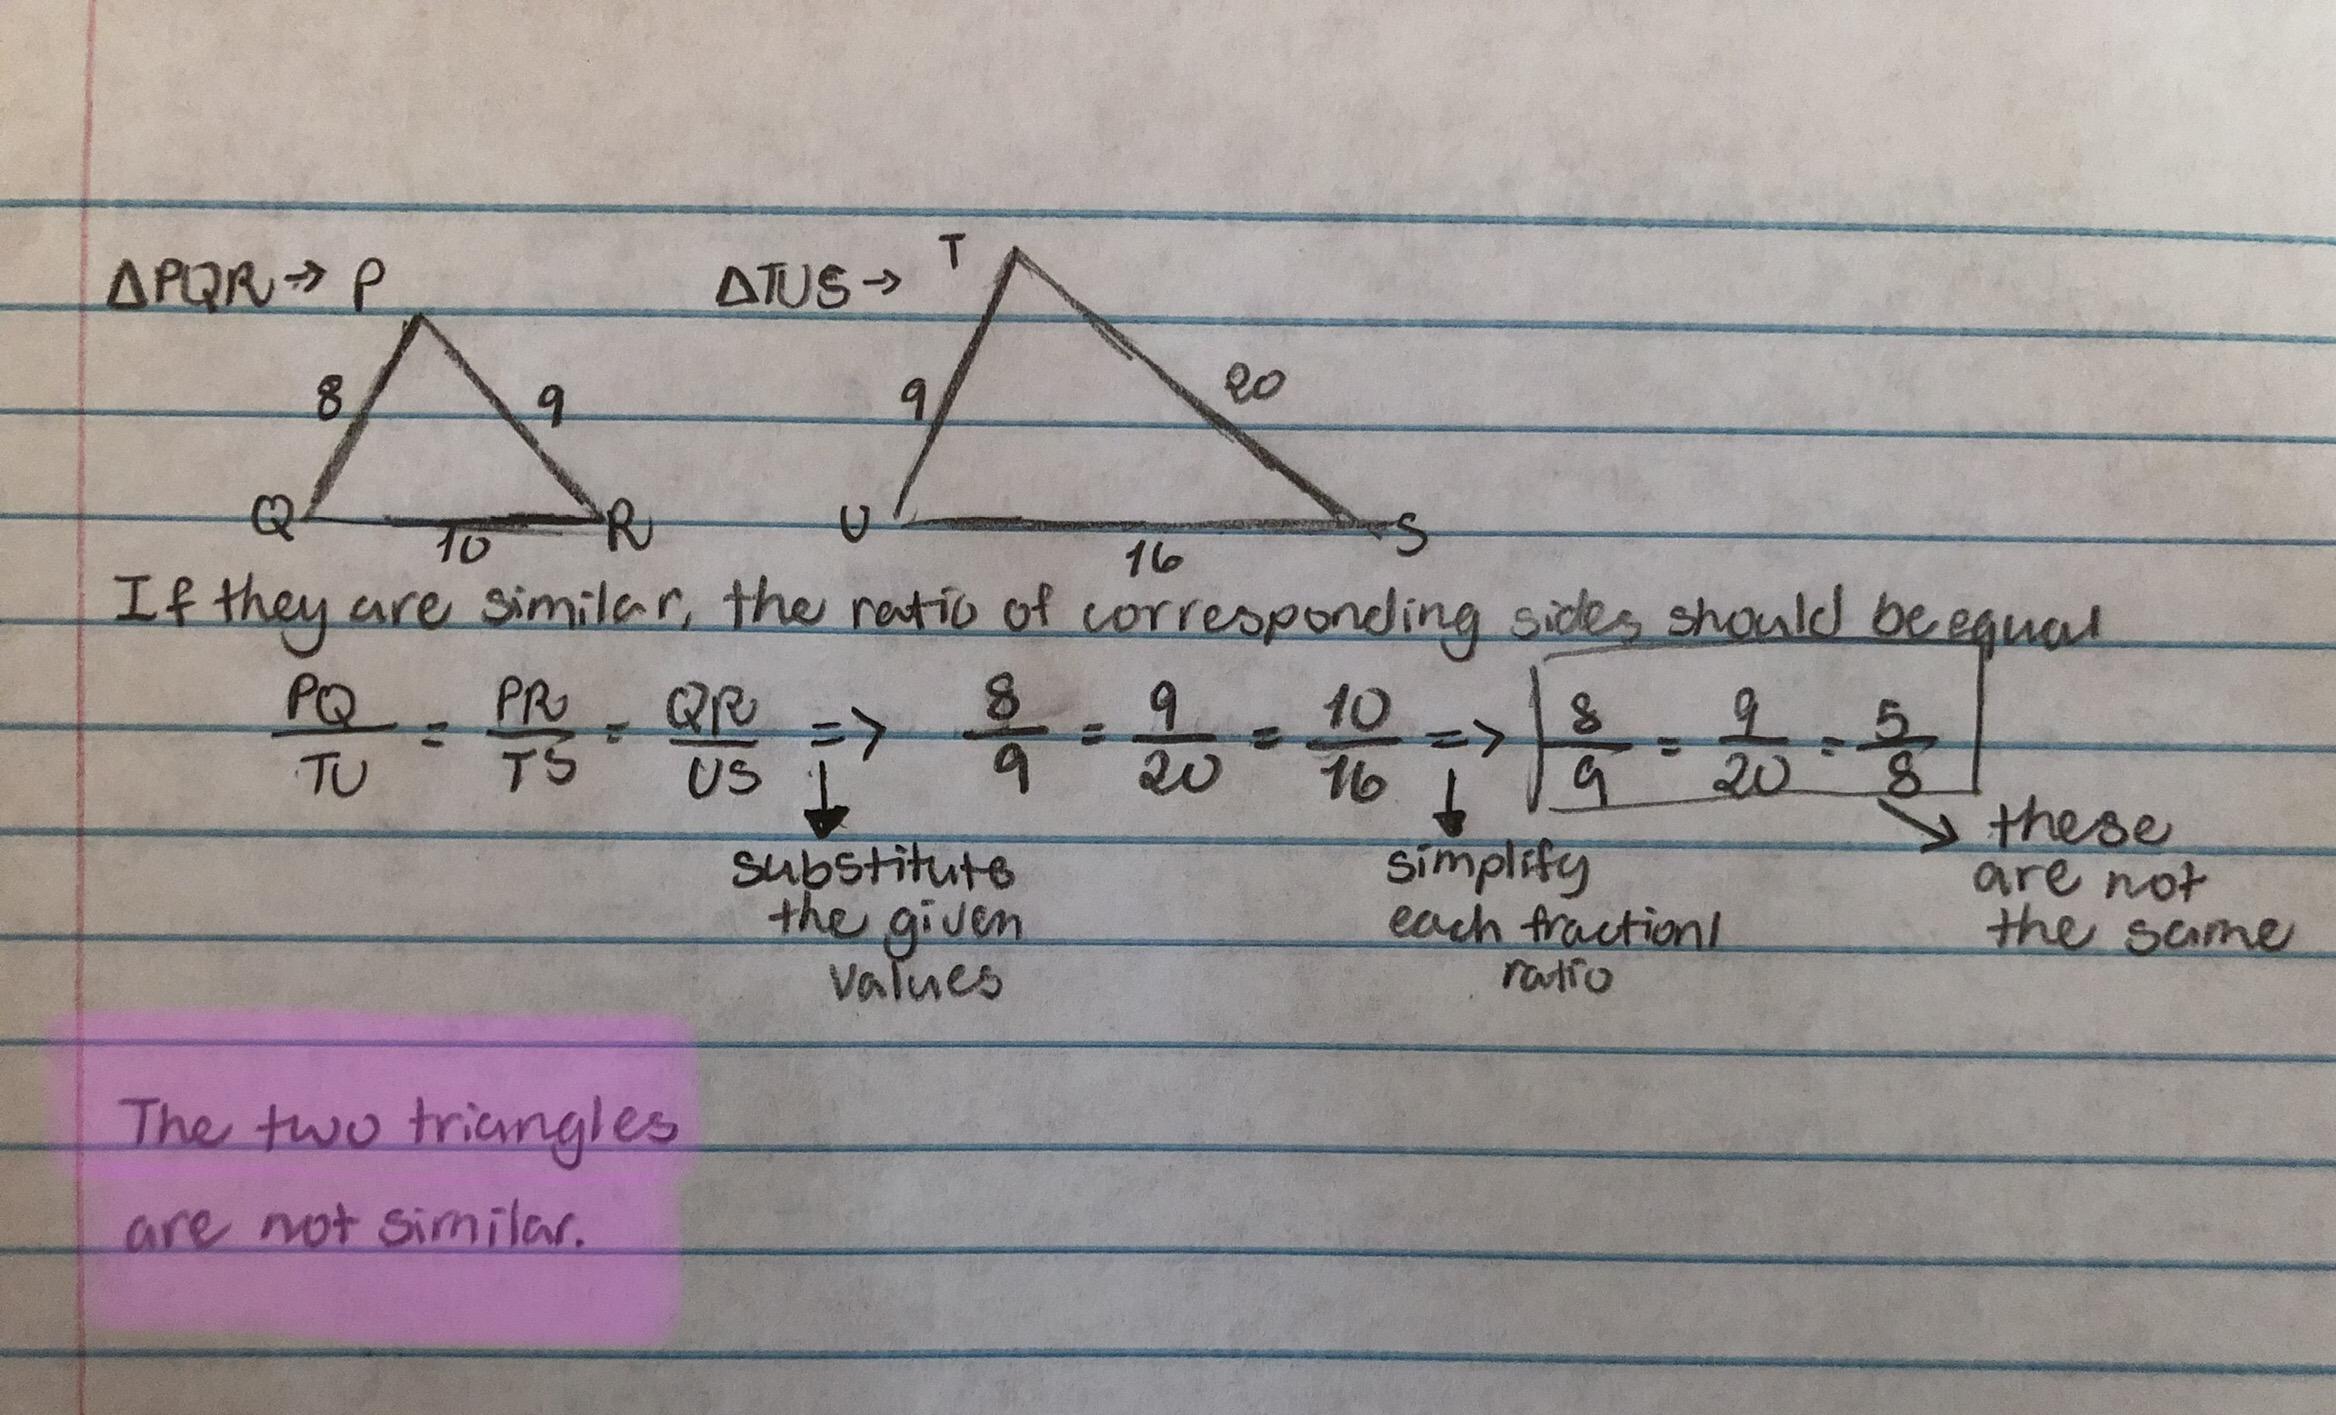 ΔPQR → P ΔTUS → T
8 9 9 20
Q R U S
10 16
If they are similar, the ratio of corresponding sides should be equal
PQ/TU = PR/TS = QR/US => 8/9 = 9/20 = 10/16 => 8/9 = 9/20 = 5/8
substitute the given values
simplify each fraction/ratio
these are not the same
The two triangles
are not similar.